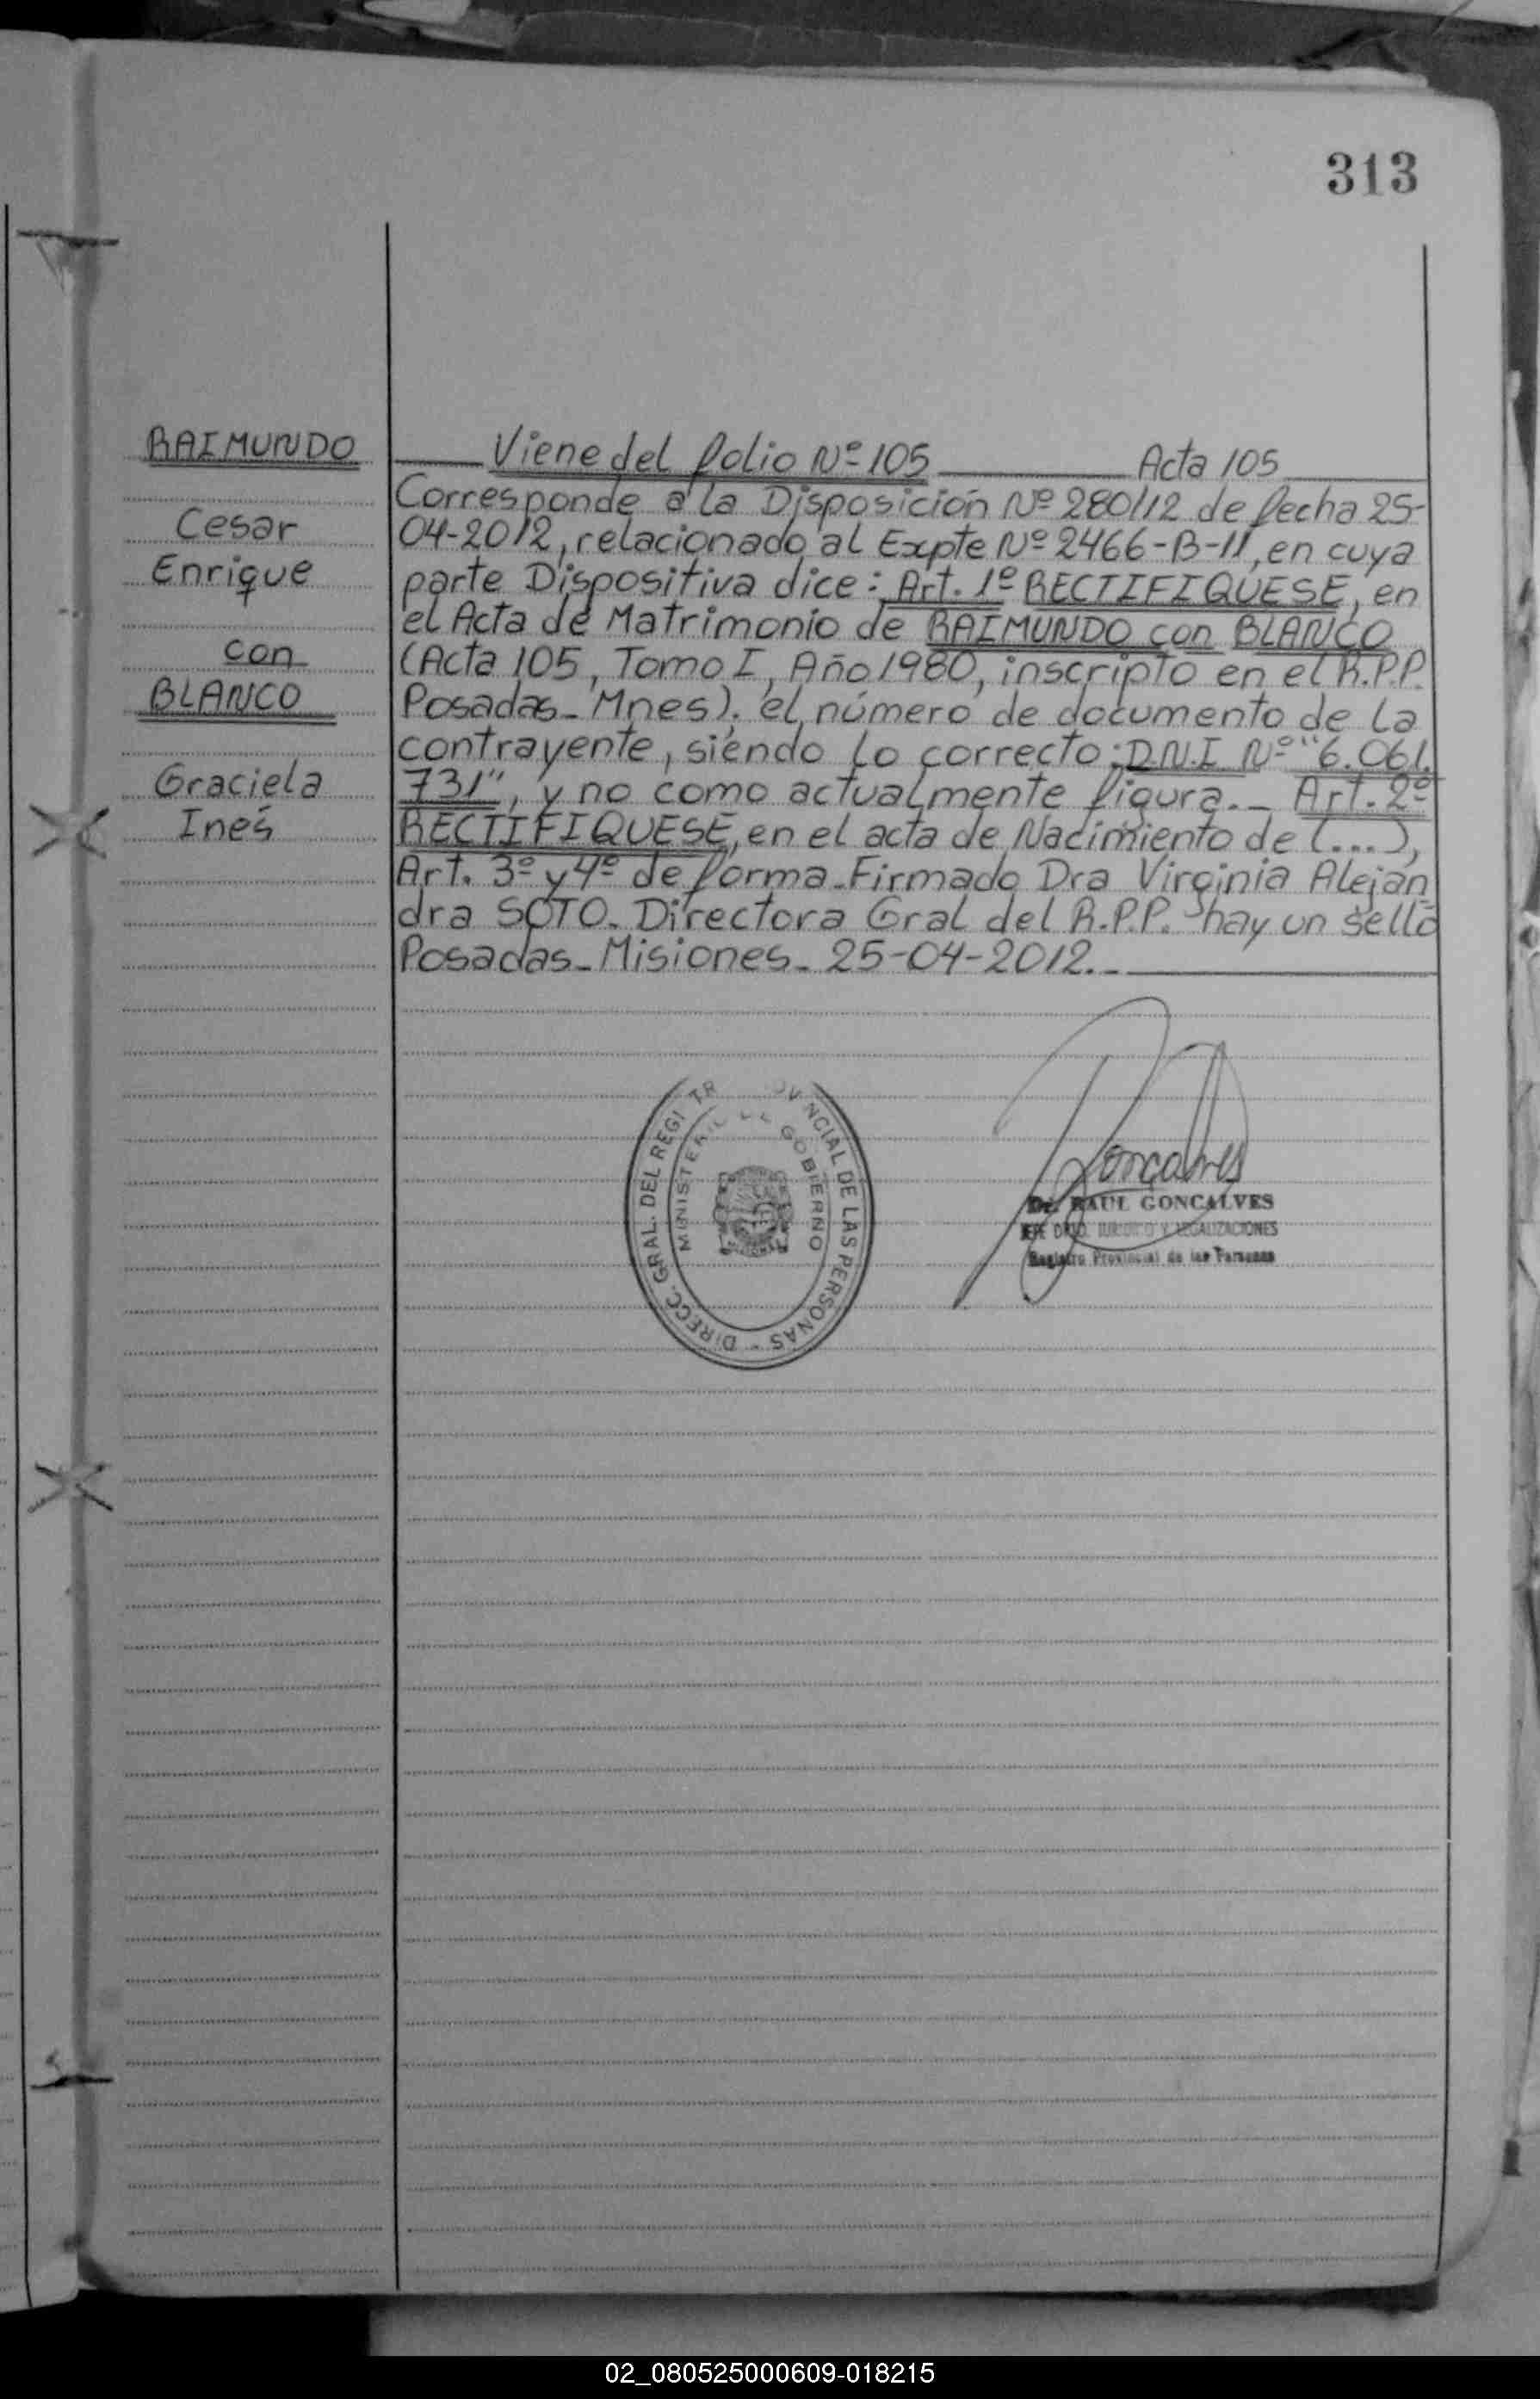 313
RAIMUNDO
Cesar
Enrique
con
BLANCO
Graciela
Inés
Viene del folio Nº 105 Acta 105
Corresponde a la Disposición Nº 280/12 de fecha 25-
04-2012, relacionado al Expte Nº 2466-B-11, en cuya
parte Dispositiva dice: Art. 1º RECTIFIQUESE, en
el Acta de Matrimonio de RAIMUNDO con BLANCO
(Acta 105, Tomo I, Año 1980, inscripto en el R.P.P.
Posadas- Mnes). el número de documento de la
contrayente, siendo lo correcto: D.N.I Nº "6.061.
731", y no como actualmente figura.- Art. 2º
RECTIFIQUESE, en el acta de Nacimiento de (...),
Art. 3º y 4º de forma-Firmado Dra Virginia Alejan-
dra SOTO. Directora Gral del R.P.P. hay un sello
Posadas-Misiones- 25-04-2012.-
DIRECC. GRAL. DEL REGI TR OV NCIAL DE LAS PERSONAS -
MINISTERI DE GOBIERNO
Goncalves
Dr. RAUL GONCALVES
JEFE DPTO. JURIDICO Y LEGALIZACIONES
Registro Provincial de las Personas
02_080525000609-018215